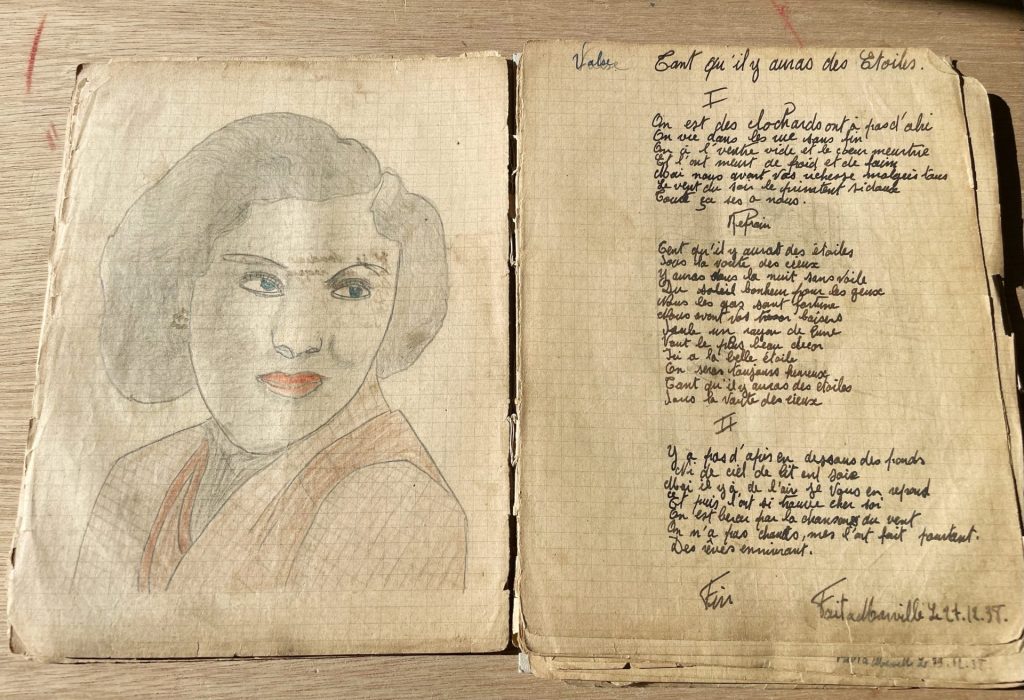 Valse
Tant qu'il y auras des Etoiles.
I
On est des clochards ont à pas d'abri
On vie dans les rue sans fin
On à l'ventre vide et le coeur meurtrie
Et l'ont meurt de froid et de faim
Mai nous avont vos richesse malgrés tous
Le vent du soir le printent
Toute ça ses a nous.
Refrain
Tent qu'il y auras des étoiles
Sous la voute des cieux
Y auras dans la nuit sans voile
Du soleil bonheur pour les geux
Nous les gas sant fortune
Nous avont vos baisers
Seule un rayon de lune
Vaut le plus beau decor
Ici a la belle étoile
On seras toujours heureux
Tant qu'il y auras des étoiles
Sous la voute des cieux
II
Y à pas d'apis en dessans des fonds
Ni de ciel de lit ent soie
Mai il y à de l'air je vous en repond
Et puis l'ont si trouve cher soi
On est bercer par la chansons du vent
On n'a pas chauds, mes l'ont fait pourtant.
Des rêves ennivrant.
Fin
Fait a Merville Le 27.12.38.